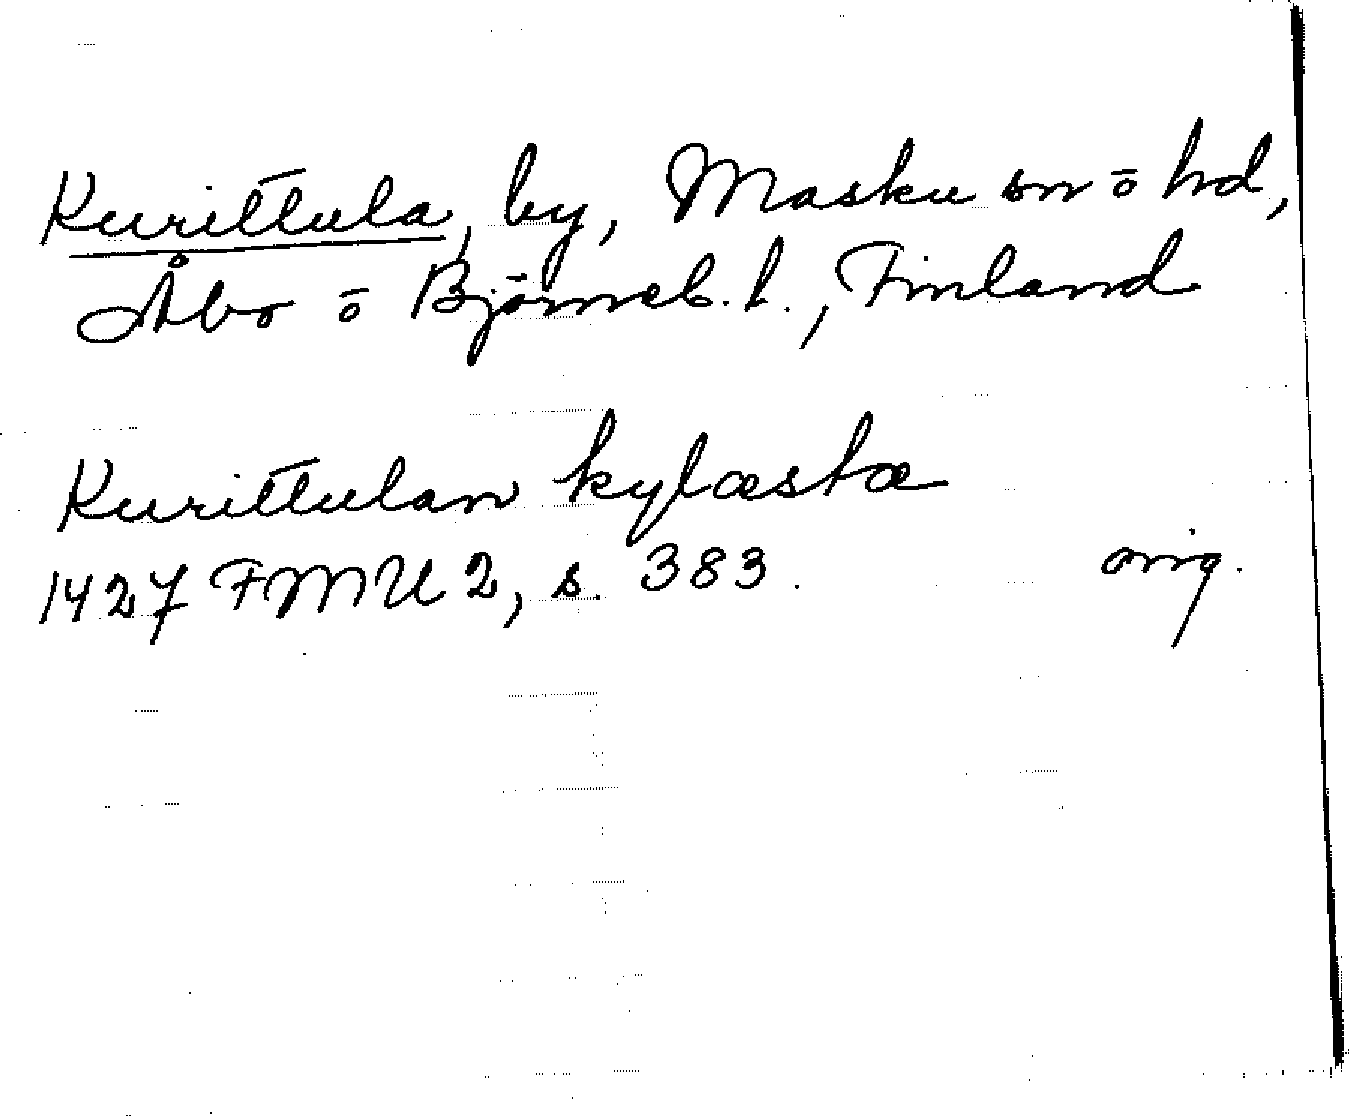 Kurittula, by, Masku sn ō hd,
Åbo ō Björneb. l., Finland
Kurittulan kylæstæ
1427 FMU 2, s. 383. orig.